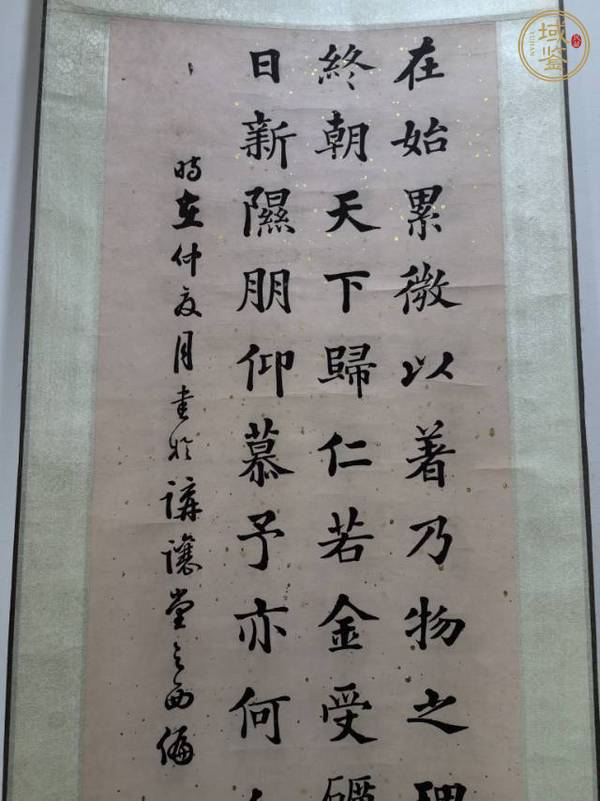 在始累微以著乃物之理
終朝天下歸仁若金受礪
日新隰朋仰慕予亦何人
時在仲夏月書於講讓堂之西偏
域鉴
YUJIAN